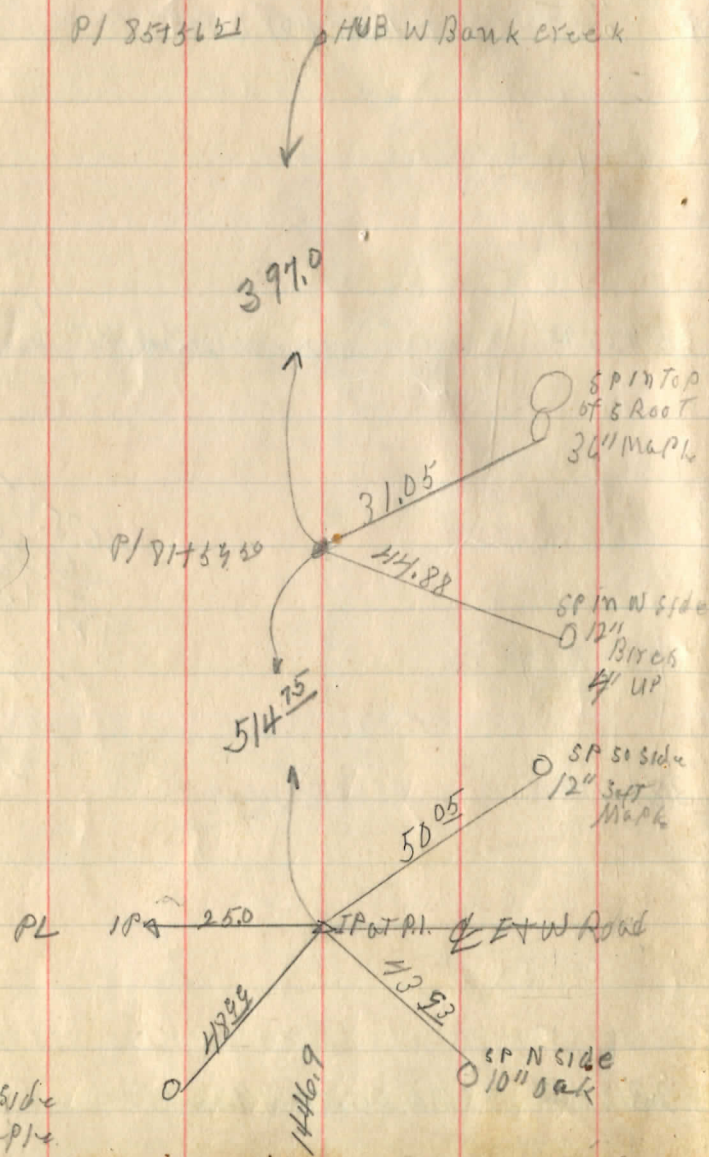 HUB W Bank creek
397.0
SP in Top
of S Root
36" Maple
31.05
44.88
SP in N Side
12"
Birch
4" UP
514 75
SP So Side
12" Soft
Maple
50 05
PL IP 25.0 IP at P.I. ℄ E+W Road
43 93
48 99
SP N Side
10" Oak
1446.9
Side